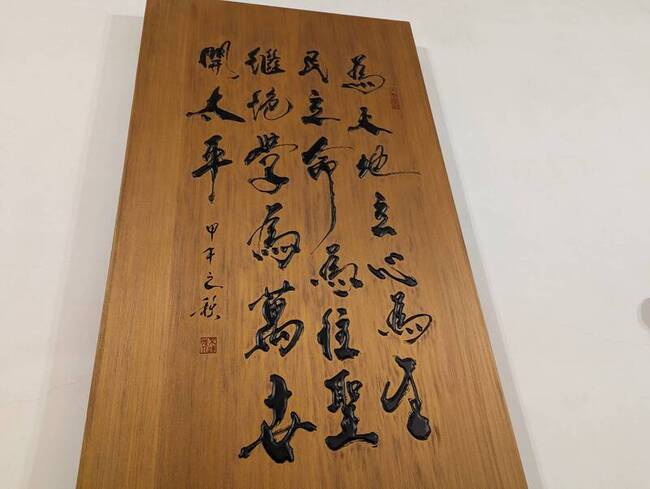 為天地立心為生
民立命為往聖
繼絕學為萬世
開太平
甲午之秋